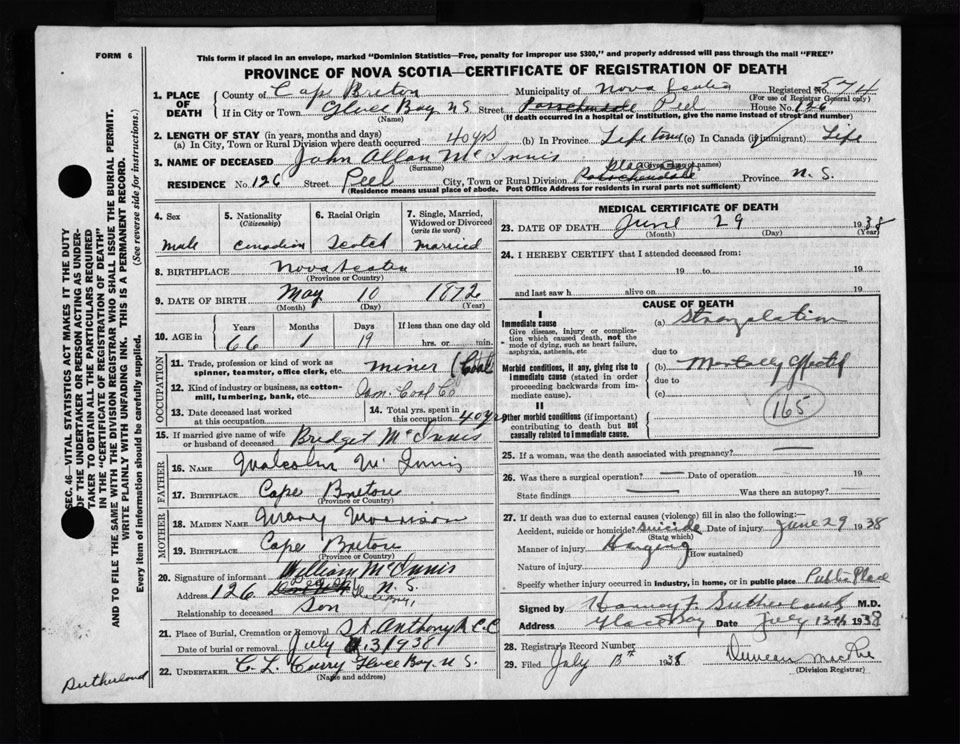 FORM 6
This form if placed in an envelope, marked "Dominion Statistics—Free, penalty for improper use $300," and properly addressed will pass through the mail "FREE"
PROVINCE OF NOVA SCOTIA—CERTIFICATE OF REGISTRATION OF DEATH
1. PLACE OF DEATH
County of Cape Breton Municipality of Nova Scotia Registered No. 574
(For use of Registrar General only)
If in City or Town Glace Bay N S Street Passchendale Peel House No. 126
(Name) (If death occurred in a hospital or institution, give the name instead of street and number)
2. LENGTH OF STAY (in years, months and days)
(a) In City, Town or Rural Division where death occurred 40 yrs (b) In Province Life time (c) In Canada (if immigrant) Life
3. NAME OF DECEASED John Allan McInnis
(Surname) (Given name or names)
RESIDENCE No. 126 Street Peel City, Town or Rural Division Passchendale Province N. S.
(Residence means usual place of abode. Post Office Address for residents in rural parts not sufficient)
SEC. 46—VITAL STATISTICS ACT MAKES IT THE DUTY
OF THE UNDERTAKER OR PERSON ACTING AS UNDER-
TAKER TO OBTAIN ALL THE PARTICULARS REQUIRED
IN THE "CERTIFICATE OF REGISTRATION OF DEATH"
AND TO FILE THE SAME WITH THE DIVISION REGISTRAR WHO SHALL ISSUE THE BURIAL PERMIT.
WRITE PLAINLY WITH UNFADING INK. THIS IS A PERMANENT RECORD.
Every item of information should be carefully supplied. (See reverse side for instructions.)
4. Sex 5. Nationality 6. Racial Origin 7. Single, Married,
(Citizenship) Widowed or Divorced
(write the word)
Male Canadian Scotch Married
8. BIRTHPLACE Nova Scotia
(Province or Country)
9. DATE OF BIRTH May 10 1872
(Month) (Day) (Year)
10. AGE in Years Months Days If less than one day old
66 1 19 hrs. or min.
OCCUPATION
11. Trade, profession or kind of work as
spinner, teamster, office clerk, etc. miner (Coal
12. Kind of industry or business, as cotton-
mill, lumbering, bank, etc. Dom. Coal Co
13. Date deceased last worked
at this occupation
14. Total yrs. spent in
this occupation 40 yrs
15. If married give name of wife
or husband of deceased Bridget McInnis
FATHER
16. NAME Malcolm McInnis
17. BIRTHPLACE Cape Breton
(Province or Country)
MOTHER
18. MAIDEN NAME Mary Morrison
19. BIRTHPLACE Cape Breton
(Province or Country)
20. Signature of informant William McInnis
Address 126 N. S.
Relationship to deceased Son
21. Place of Burial, Cremation or Removal St. Anthony R.C.C
Date of burial or removal July 3 1938
22. UNDERTAKER C. L. Curry Glace Bay N S.
(Name and address)
Sutherland
MEDICAL CERTIFICATE OF DEATH
23. DATE OF DEATH June 29 1938
(Month) (Day) (Year)
24. I HEREBY CERTIFY that I attended deceased from:
19 to 19
and last saw h alive on 19
CAUSE OF DEATH
I
Immediate cause (a) Strangulation
Give disease, injury or complica-
tion which caused death, not the
mode of dying, such as heart failure,
asphyxia, asthenia, etc
due to
Morbid conditions, if any, giving rise to
immediate cause (stated in order
proceeding backwards from im-
mediate cause).
(b) Mentally affected
due to
(c)
165
II
Other morbid conditions (if important)
contributing to death but not
causally related to immediate cause.
25. If a woman, was the death associated with pregnancy?
26. Was there a surgical operation? Date of operation 19
State findings Was there an autopsy?
27. If death was due to external causes (violence) fill in also the following:—
Accident, suicide or homicide? Suicide Date of injury June 29 1938
(State which)
Manner of injury Hanging
(How sustained)
Nature of injury
Specify whether injury occurred in industry, in home, or in public place Public Place
Signed by Harvey F. Sutherland M.D.
Address Glace Bay Date July 13th 1938
28. Registrar's Record Number
29. Filed July 13th 1938 Duncan MacRae
(Division Registrar)